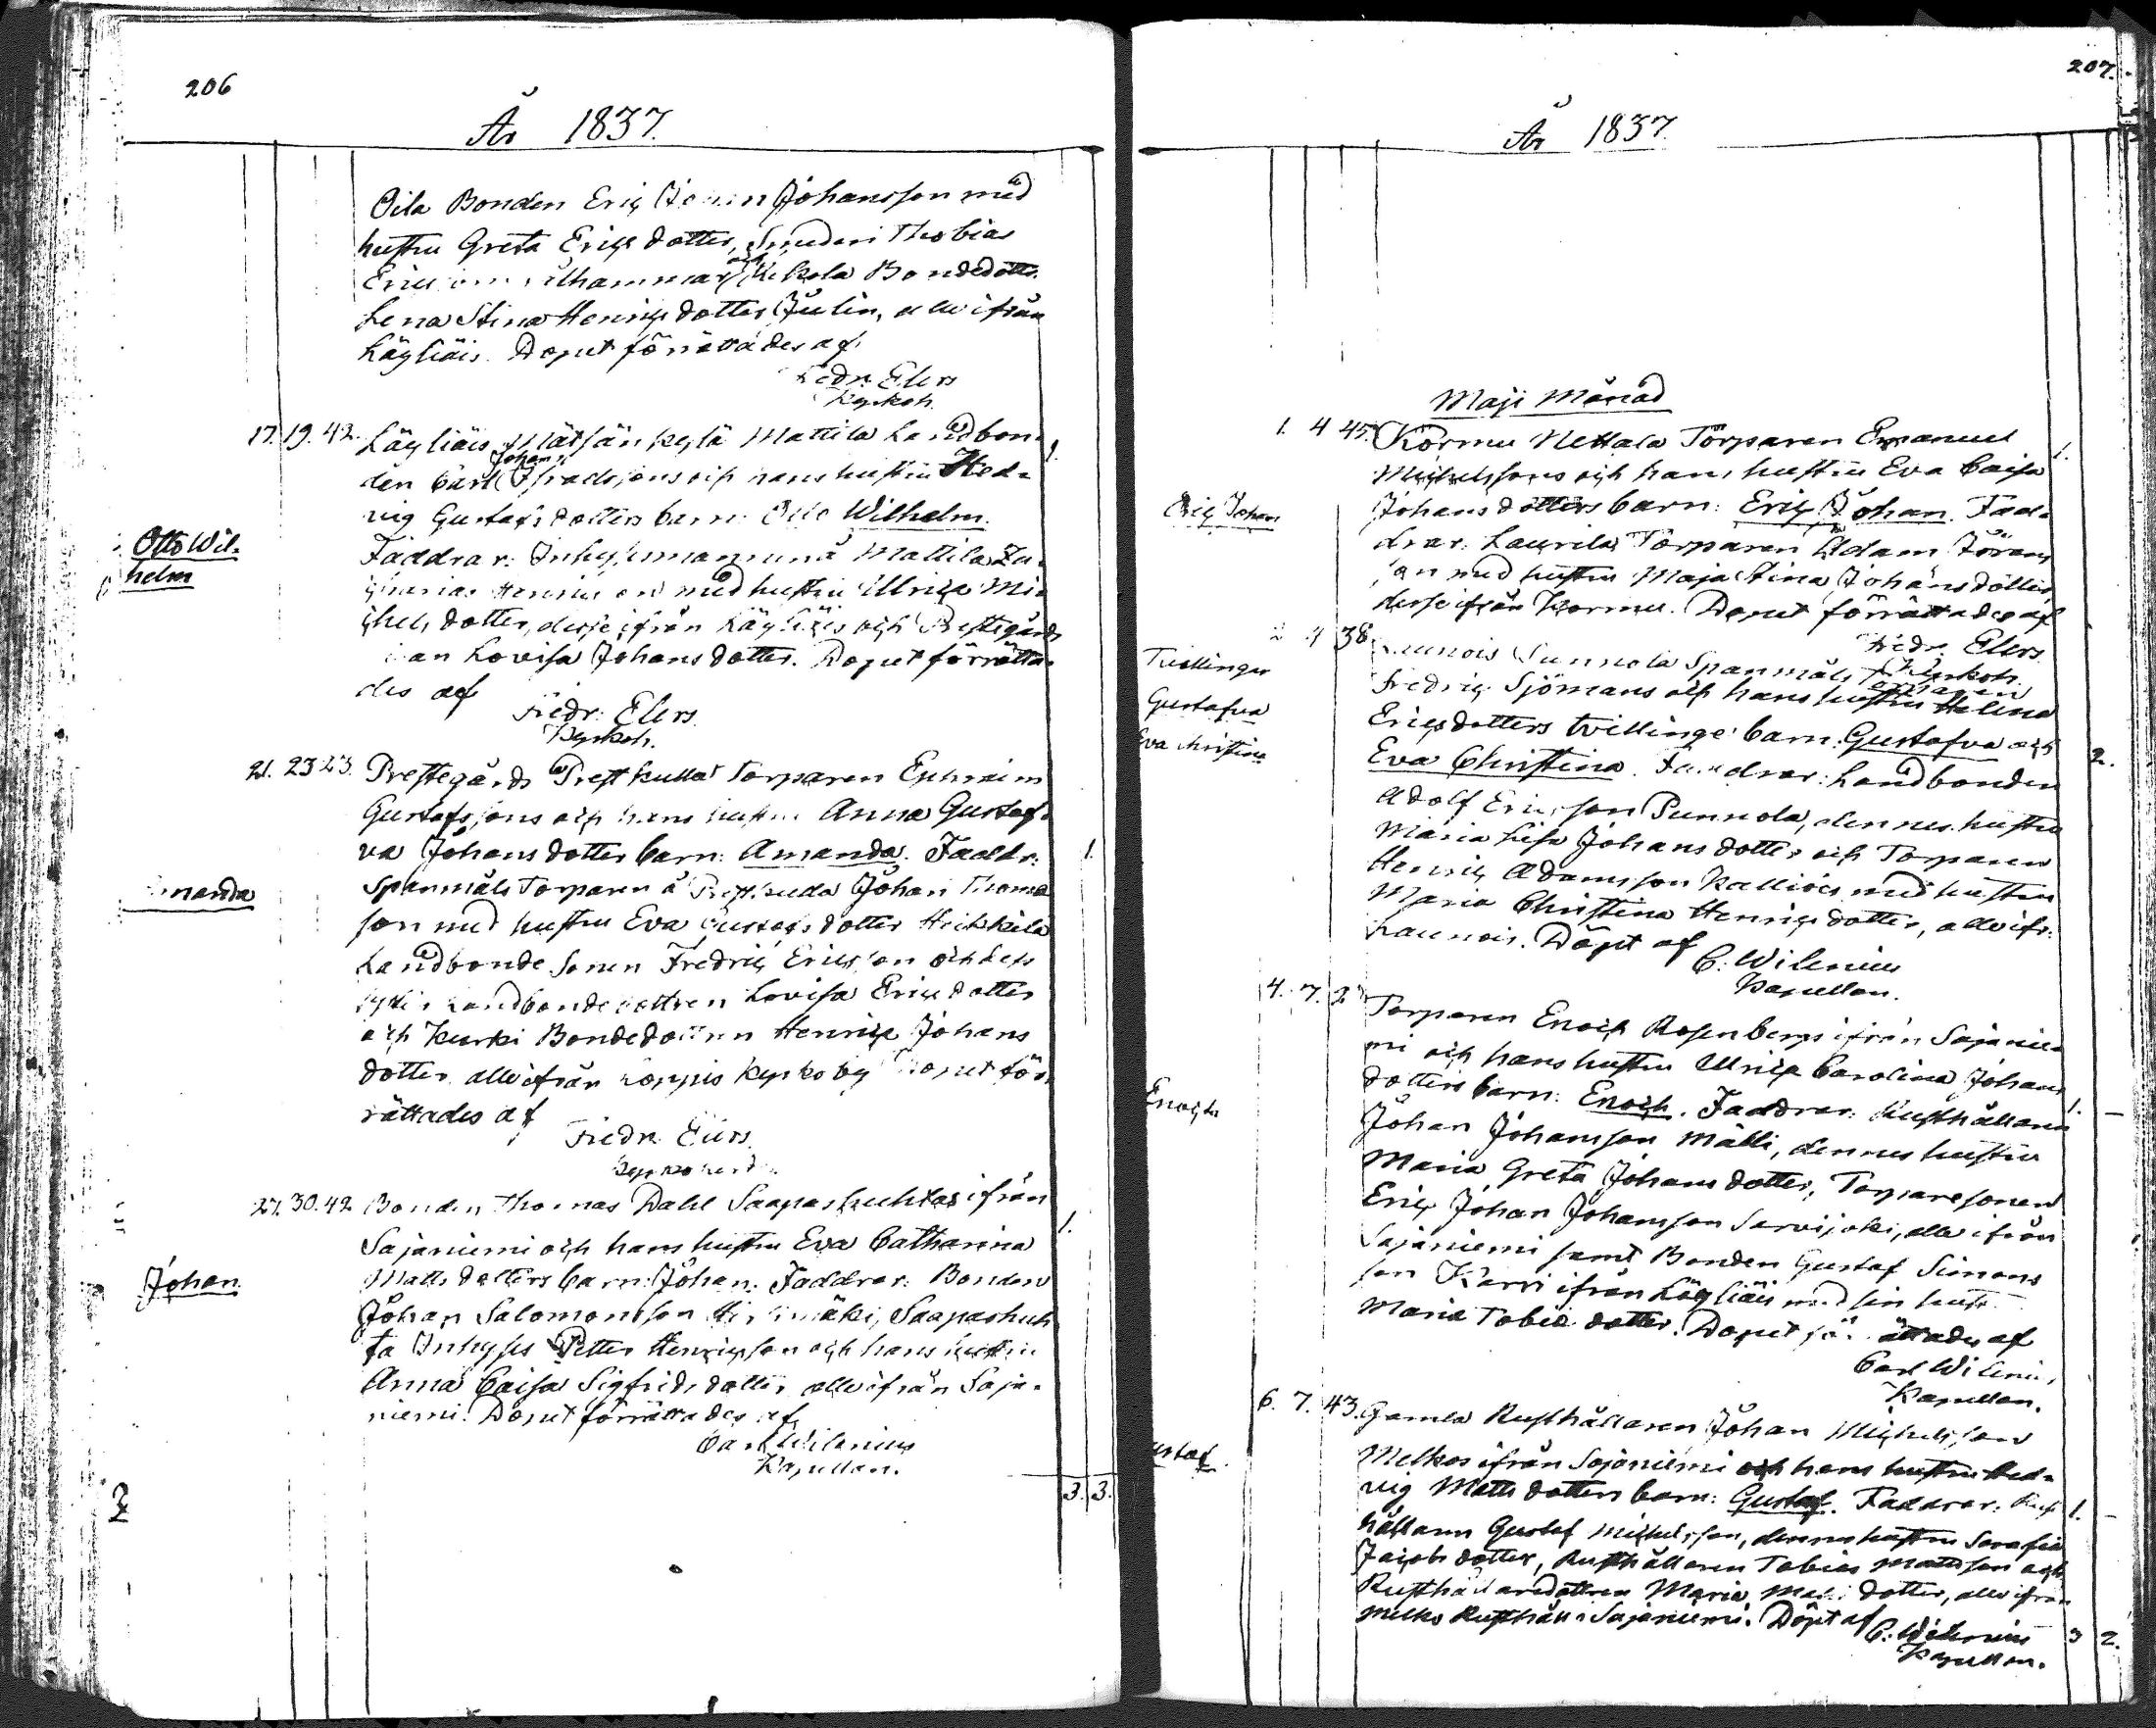 206
År 1837.
Oila Bonden Eric Johan Johansson med
hustru Greta Ericsdotter, Smeden Thobias
Kekola Bondedottr.
Lena Stina Henricsdotter Julin, alle ifrån
Läyliäis. Doput förrättades af
Fredr. Elers
Kyrkoh.
17. 19. 42. Läyliäis Mattila Landbon-
den Carl Johan Isracssons och hans hustru Hed-
vig Gustafsdotters barn: Otto Wilhelm.
Otto Wil-
helm
Faddrar: Mattila Za-
med hustru Ulrica Mi-
chelsdotter, desse ifrån Läyliäis och Prestegårds
Lovisa Johansdotter. Doput förrätta-
des af
Fredr. Elers
Kyrkoh.
21. 23 23. Prestegårds Prestkulla Torparen Ephraim
Gustafssons och hans hustru Anna Gustaf-
va Johansdotters barn: Amanda. Faddr:
1.
Amanda
Spanmåls Torparen å Johan Thomas
son med hustru Eva Gustafsdotter Heikkilä
Landbonde Sonen Fredric Ericsson och
Landbondedottren Lovisa Ericsdotter
och Kurki Bondedottren Henrica Johans
dotter alle ifrån Loppis Kyrkoby Doput för-
rättades af
Fredr. Elers
Kyrkoherde
27. 30. 42 Bonden Thomas Dahl Saapashuhta ifrån
1.
Sajaniemi och hans hustru Eva Catharina
Mattsdotters barn: Johan. Faddrar: Bonden
Johan.
Johan Salomonsson Saapashuh
ta Inhyses Petter Henricsson och hans hustru
Anna Caisa Sigfridsdotter alle ifrån Saja-
niemi. Doput förrättades af
Carl Wilenius
Kapellan.
3. 3.
207.
År 1837
Maji Månad
1. 4 45. Kormu Nettala Torparen Emanuel
1.
Michelssons och hans hustru Eva Caisa
Johansdotters barn: Eric Johan. Fad-
Eric Johan
drar: Laurila Torparen Adam Jörans
son med hustru Maja Stina Johansdotter
desse ifrån Kormu. Doput förrättades af
Fredr. Elers
Kyrkoh.
2 4 38. Launois Sunnola Spanmåls Torparen
Fredric Sjömans och hans hustru Helena
Ericsdotters tvillinge barn: Gustafva och
Tvillingar
Gustafva
Eva Christina
Eva Christina. Faddrar: Landbonden
2.
Adolf Ericsson Punnola, dennes hustru
Maria Lisa Johansdotter och Torparen
Henric Adamsson Kalliois med hustru
Maria Christina Henricsdotter, alle ifr:
Launois. Döpt af
C. Wilenius
Kapellan.
4. 7. Torparen Enoch Rosenbergs ifrån Sajanie-
mi och hans hustru Ulrica Carolina Johans
dotters barn: Enoch. Faddrar: Rusthållaren
1. –
Enoch
Johan Johansson Mälli, dennes hustru
Maria Greta Johansdotter, Torparesonen
Eric Johan Johansson Sarvijoki, alle ifrån
Sajaniemi samt Bonden Gustaf Simons
son Karri ifrån Läyliäis med sin hustr.
Maria Tobiedotter. Doput förrättades af
Carl Wilenius
Kapellan.
6. 7. 43. Gamla Rusthållaren Johan Michelsson
Melkos ifrån Sajaniemi och hans hustru Hed-
vig Mattsdotters barn: Gustaf. Faddrar: Rust
1. –
Gustaf
hållaren Gustaf Michelsson, dennes hustru Serafia
Jacobsdotter, Rusthållaren Tobias Mattsson och
Rusthållaredottren Maria Mattsdotter, alle ifrån
Melko Rusthåll i Sajaniemi. Döpt af
C. Wilenius
Kapellan.
3 2.